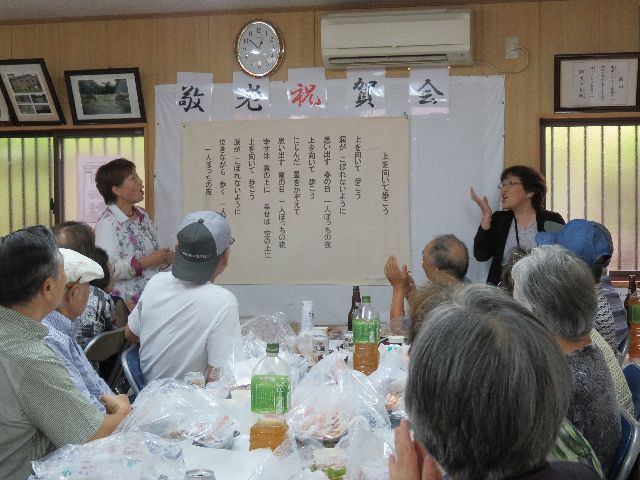 敬老祝賀会
上を向いて歩こう
上を向いて 歩こう
涙が こぼれないように
思い出す 春の日 一人ぼっちの夜
上を向いて 歩こう
にじんだ 星をかぞえて
思い出す 夏の日 一人ぼっちの夜
幸せは 雲の上に 幸せは 空の上に
上を向いて 歩こう
涙が こぼれないように
泣きながら 歩く
一人ぼっちの夜